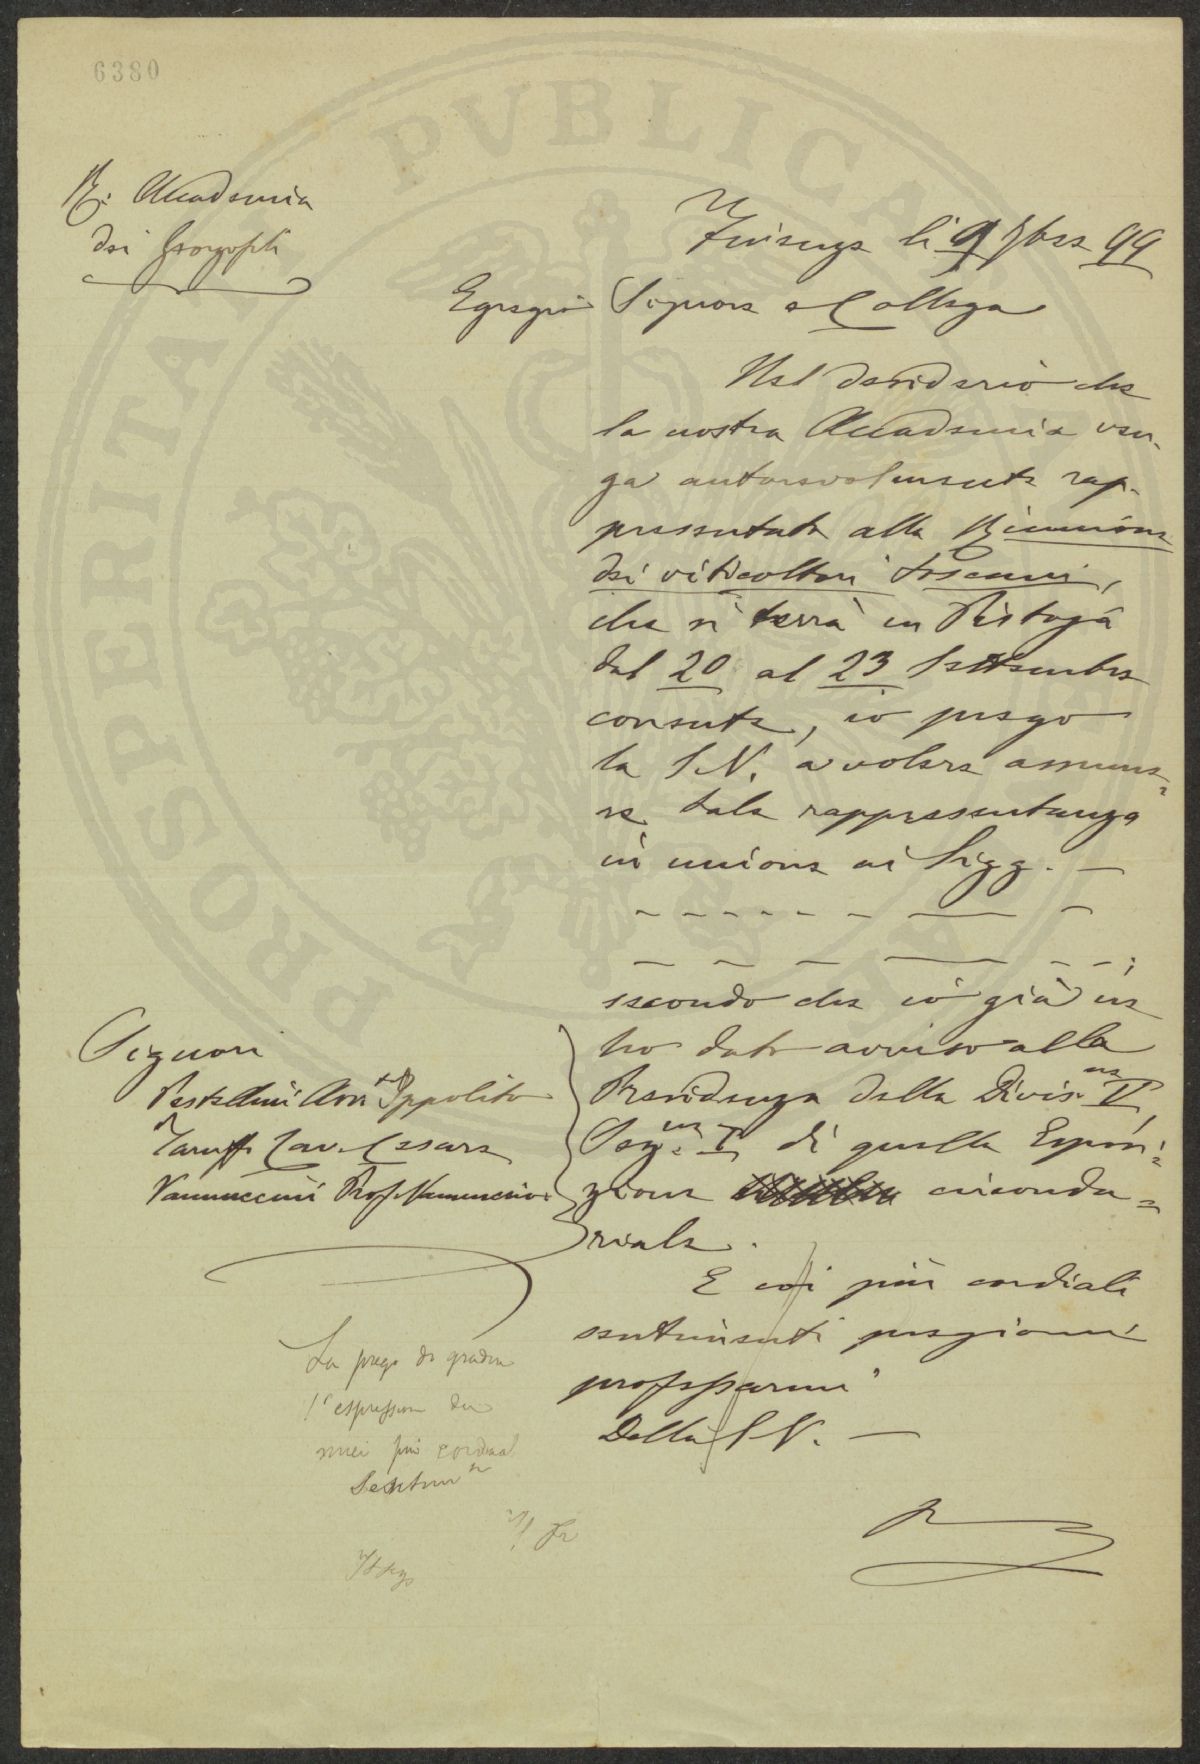 6380
R. Accademia
dei Georgofili
Firenze li 9 7bre 99
Egregio Signore e Collega
Nel desiderio che
la nostra Accademia ven-
ga autorevolmente rap-
presentata alla Riunione
dei viticoltori toscani,
che si terrà in Pistoja
dal 20 al 23 Settembre
corrente, io prego
la S.V. a volere assume=
re tale rappresentanza
in unione ai Sigg. —
secondo che io già ne
ho dato avviso alla
Presidenza della Divis.ne V,
Sez.ne I di quella Esposi=
zione circonda=
riale.
E coi più cordiali
sentimenti pregiomi
professarmi
Della S.V. —
Signori
Pestellini Avv.t Ippolito
Taruffi Cav. Cesare
Vannuccini Prof. Vannuccio
La prego di gradire
l'espressione dei
miei più cordiali
Sentim.ti
PROSPERITA PVBLICA